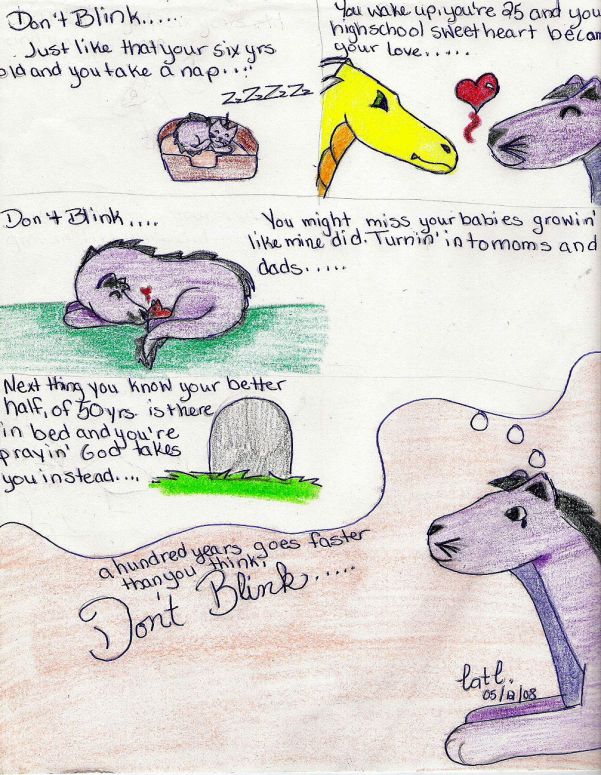 Don't Blink.....
Just like that your six yrs
old and you take a nap....
ZzZzZzZz
You wake up, you're 25 and you
highschool sweetheart becam
your love.....
Don't Blink....
You might miss your babies growin'
like mine did. Turnin' into moms and
dads.....
Next thing you know your better
half, of 50 yrs is there
in bed and you're
prayin' God takes
you instead....
a hundred years goes faster
than you think,
Don't Blink.....